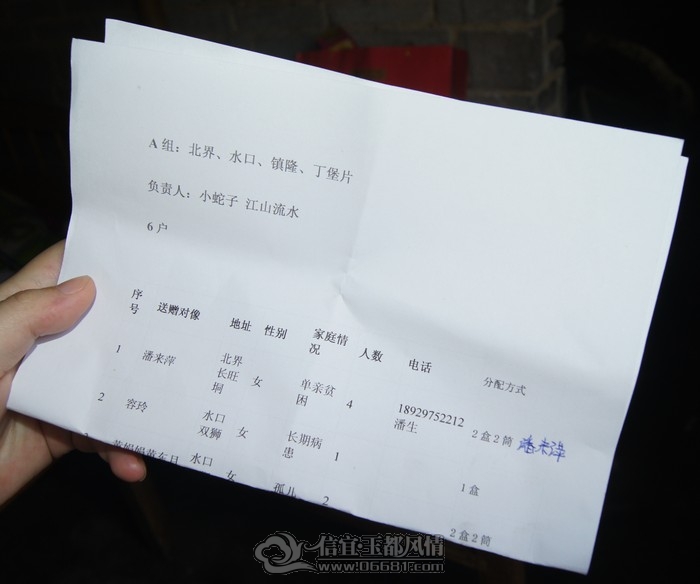 A 组：北界、水口、镇隆、丁堡片
负责人：小蛇子 江山流水
6 户
序号 送赠对像 地址 性别 家庭情况 人数 电话 分配方式
1 潘来萍 北界长旺垌 女 单亲贫困 4 18929752212 潘生 2 盒 2 筒 潘来萍
2 容玲 水口双狮 女 长期病患 1 1 盒
水口 女 孤儿 2 2 盒 2 筒
信宜玉都风情
www.06681.com